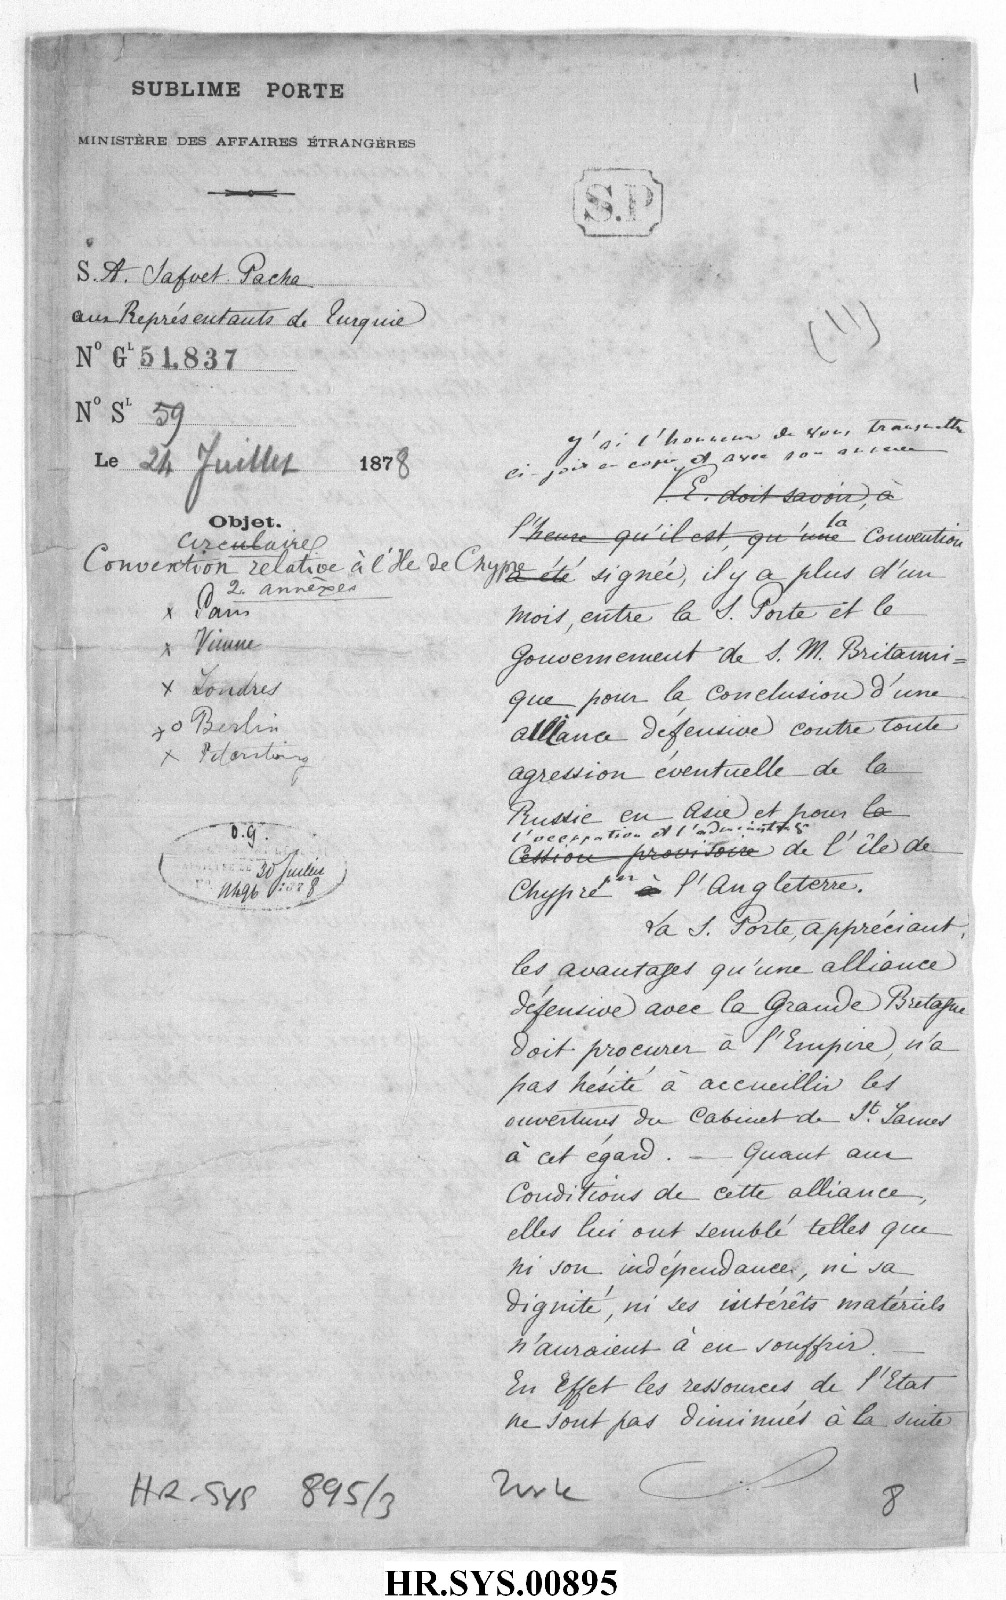 SUBLIME PORTE
1
MINISTÈRE DES AFFAIRES ÉTRANGÈRES
S.P
S. A. Safvet Pacha
aux Représentants de Turquie
(11)
Nº Gᴸ 51,837
Nº Sᴸ 59
Le 24 Juillet 1878
Objet.
Circulaire
Convention relative à l'île de Chypre
2 annexes
x Paris
x Vienne
x Londres
x o Berlin
x Petersbourg
O.G.
30 Juillet
8
J'ai l'honneur de vous transmettre
ci-joint en copie et avec son annexe
V. E. doit savoir, à
l'heure qu'il est, qu'une la Convention
a été signée, il y a plus d'un
mois, entre la S. Porte et le
Gouvernement de S. M. Britanni=
que pour la conclusion d'une
alliance défensive contre toute
agression éventuelle de la
Russie en Asie et pour la
l'occupation et l'administration
Cession provisoire de l'île de
Chypre par à l'Angleterre.
La S. Porte, appréciant
les avantages qu'une alliance
défensive avec la Grande Bretagne
doit procurer à l'Empire, n'a
pas hésité à accueillir les
ouvertures du Cabinet de St. James
à cet égard. — Quant aux
Conditions de cette alliance,
elles lui ont semblé telles que
ni son indépendance, ni sa
dignité, ni ses intérêts matériels
n'auraient à en souffrir. —
En Effet les ressources de l'Etat
ne sont pas diminués à la suite
HR-SYS 895/3
8
HR.SYS.00895